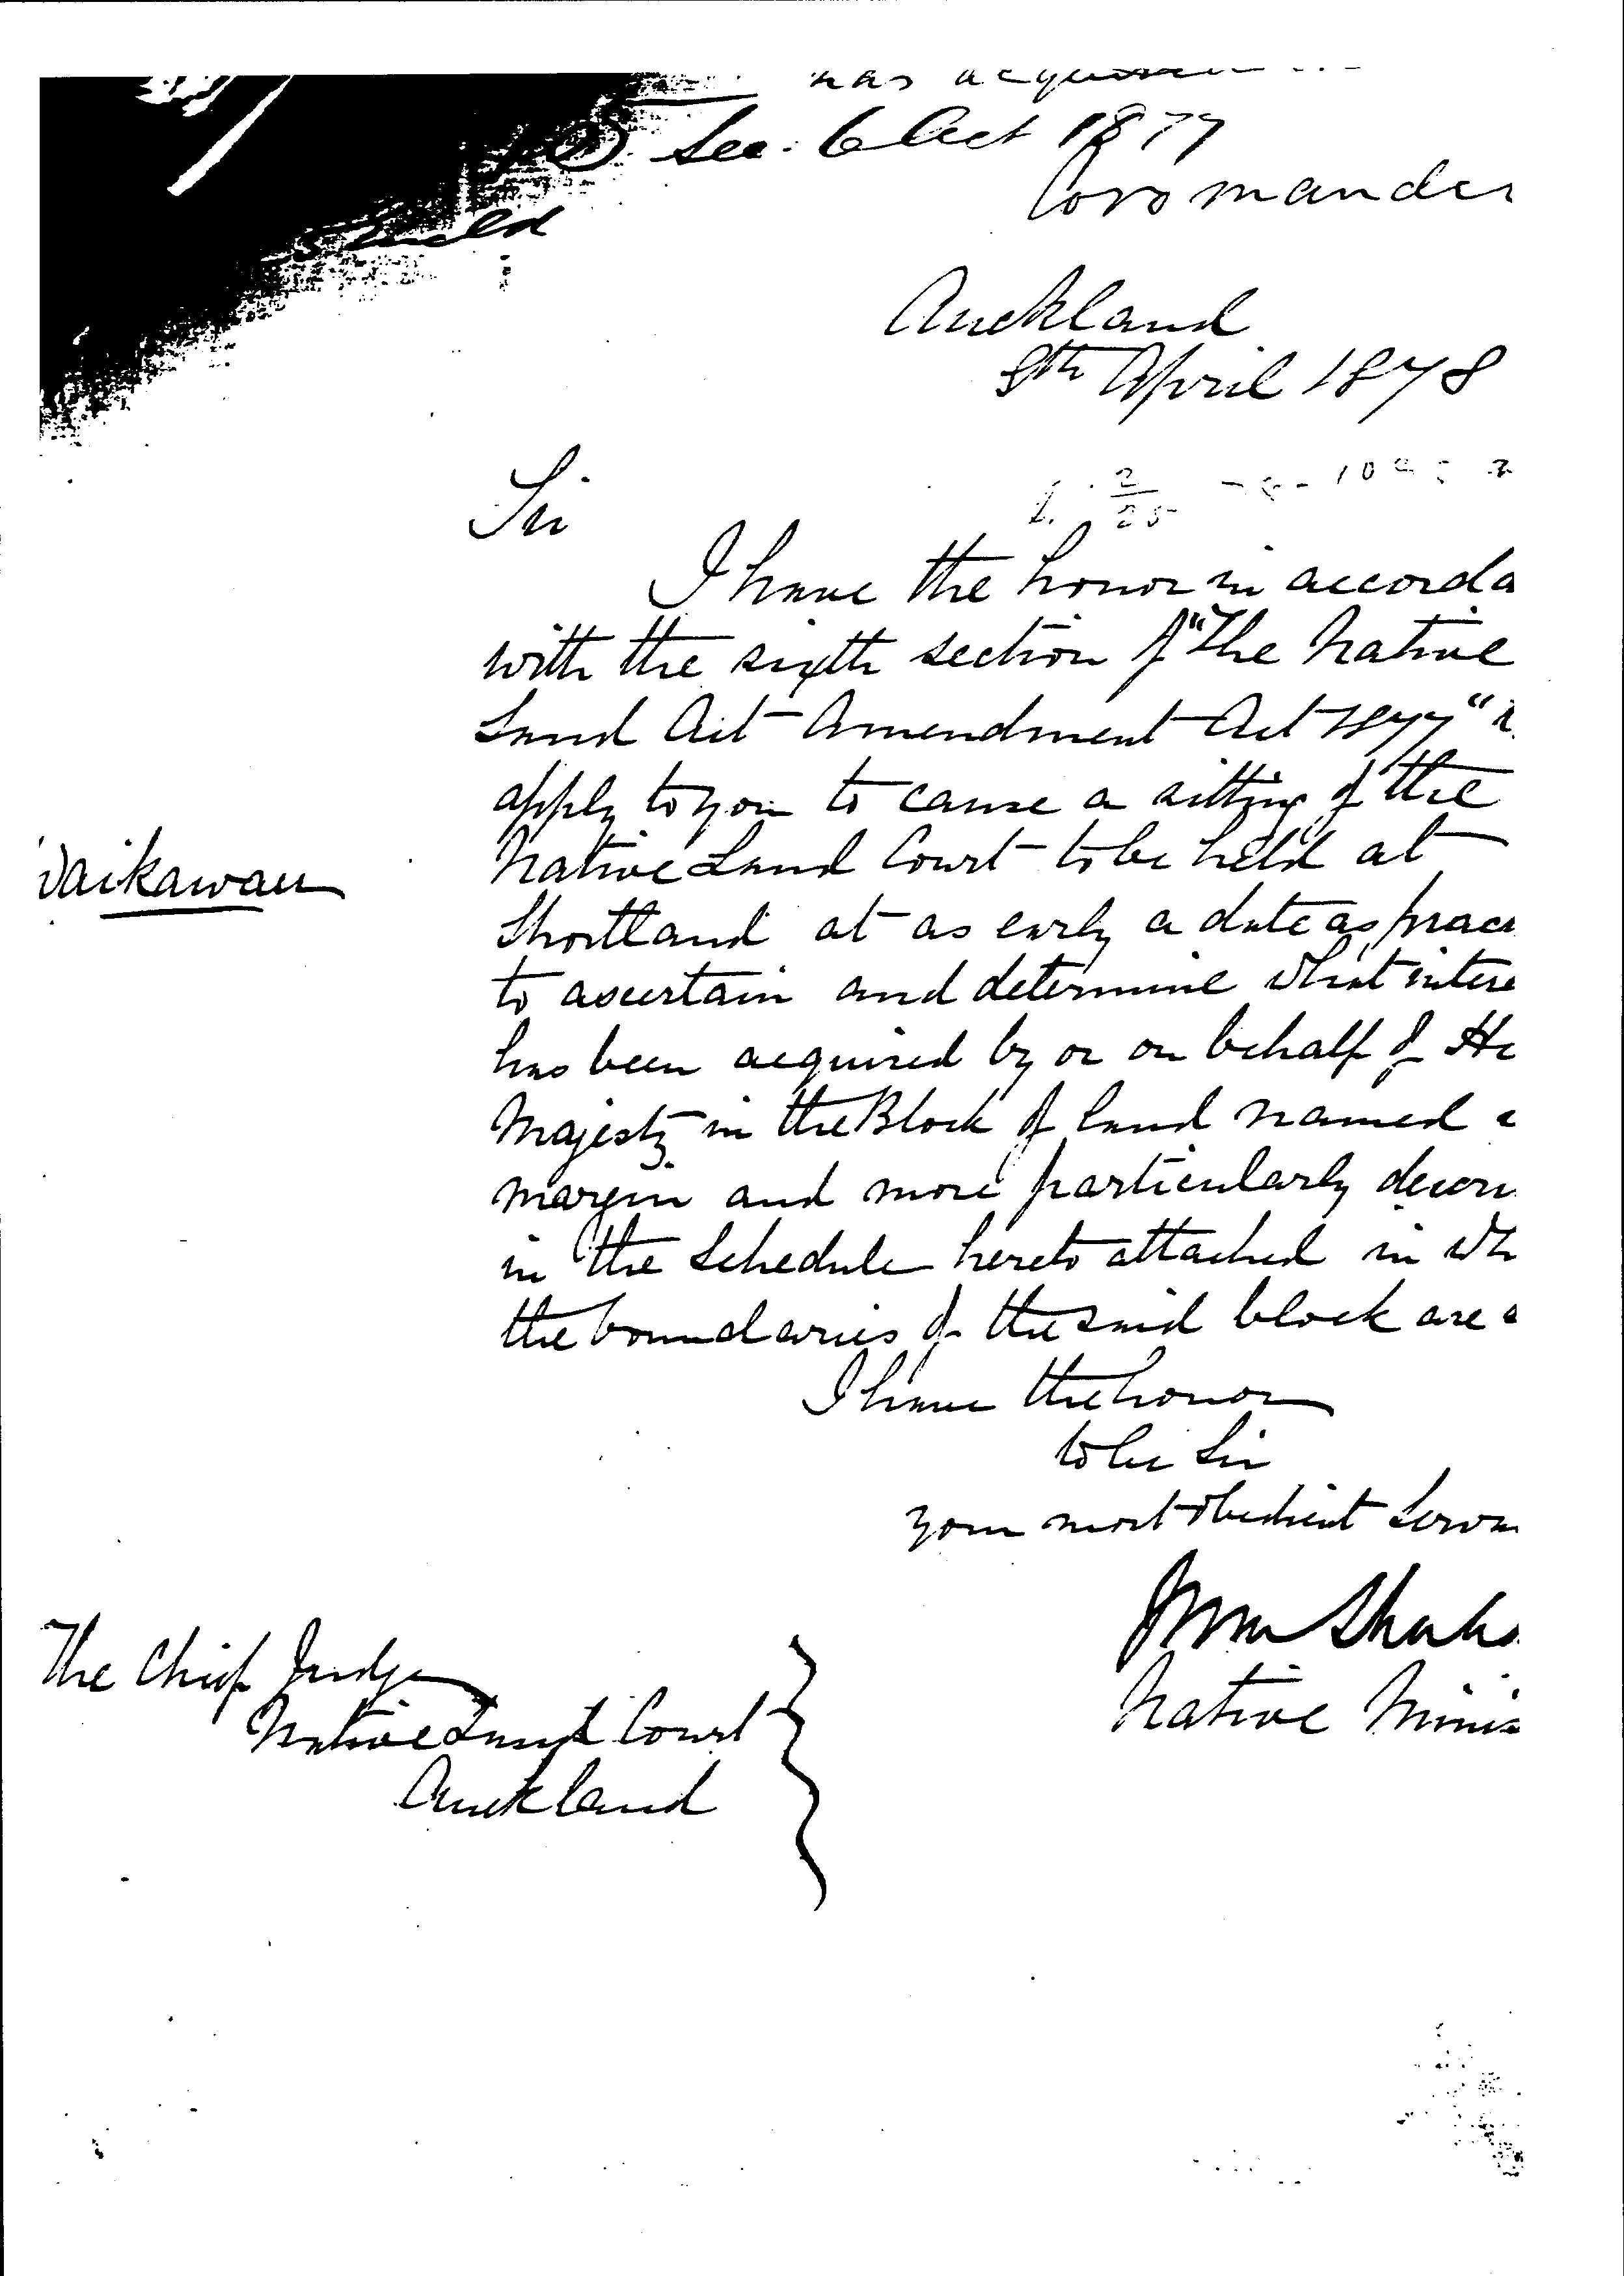 has acquired
Sec. 6 Act 1877
Coromandel
Auckland
8th April 1878
Sir
I have the honor in accorda
with the sixth section of "The Native
Land Act Amendment Act 1877"
apply to you to cause a sitting of the
Native Land Court to be held at
Shortland at as early a date as prac
to ascertain and determine what intere
has been acquired by or on behalf of He
Majesty in the Block of land named
margin and more particularly descri
in the Schedule hereto attached in wh
the boundaries of the said block are
Waikawau
I have the honor
to be Sir
your most obedient Serva
Native Minis
The Chief Judge
Native Land Court
Auckland